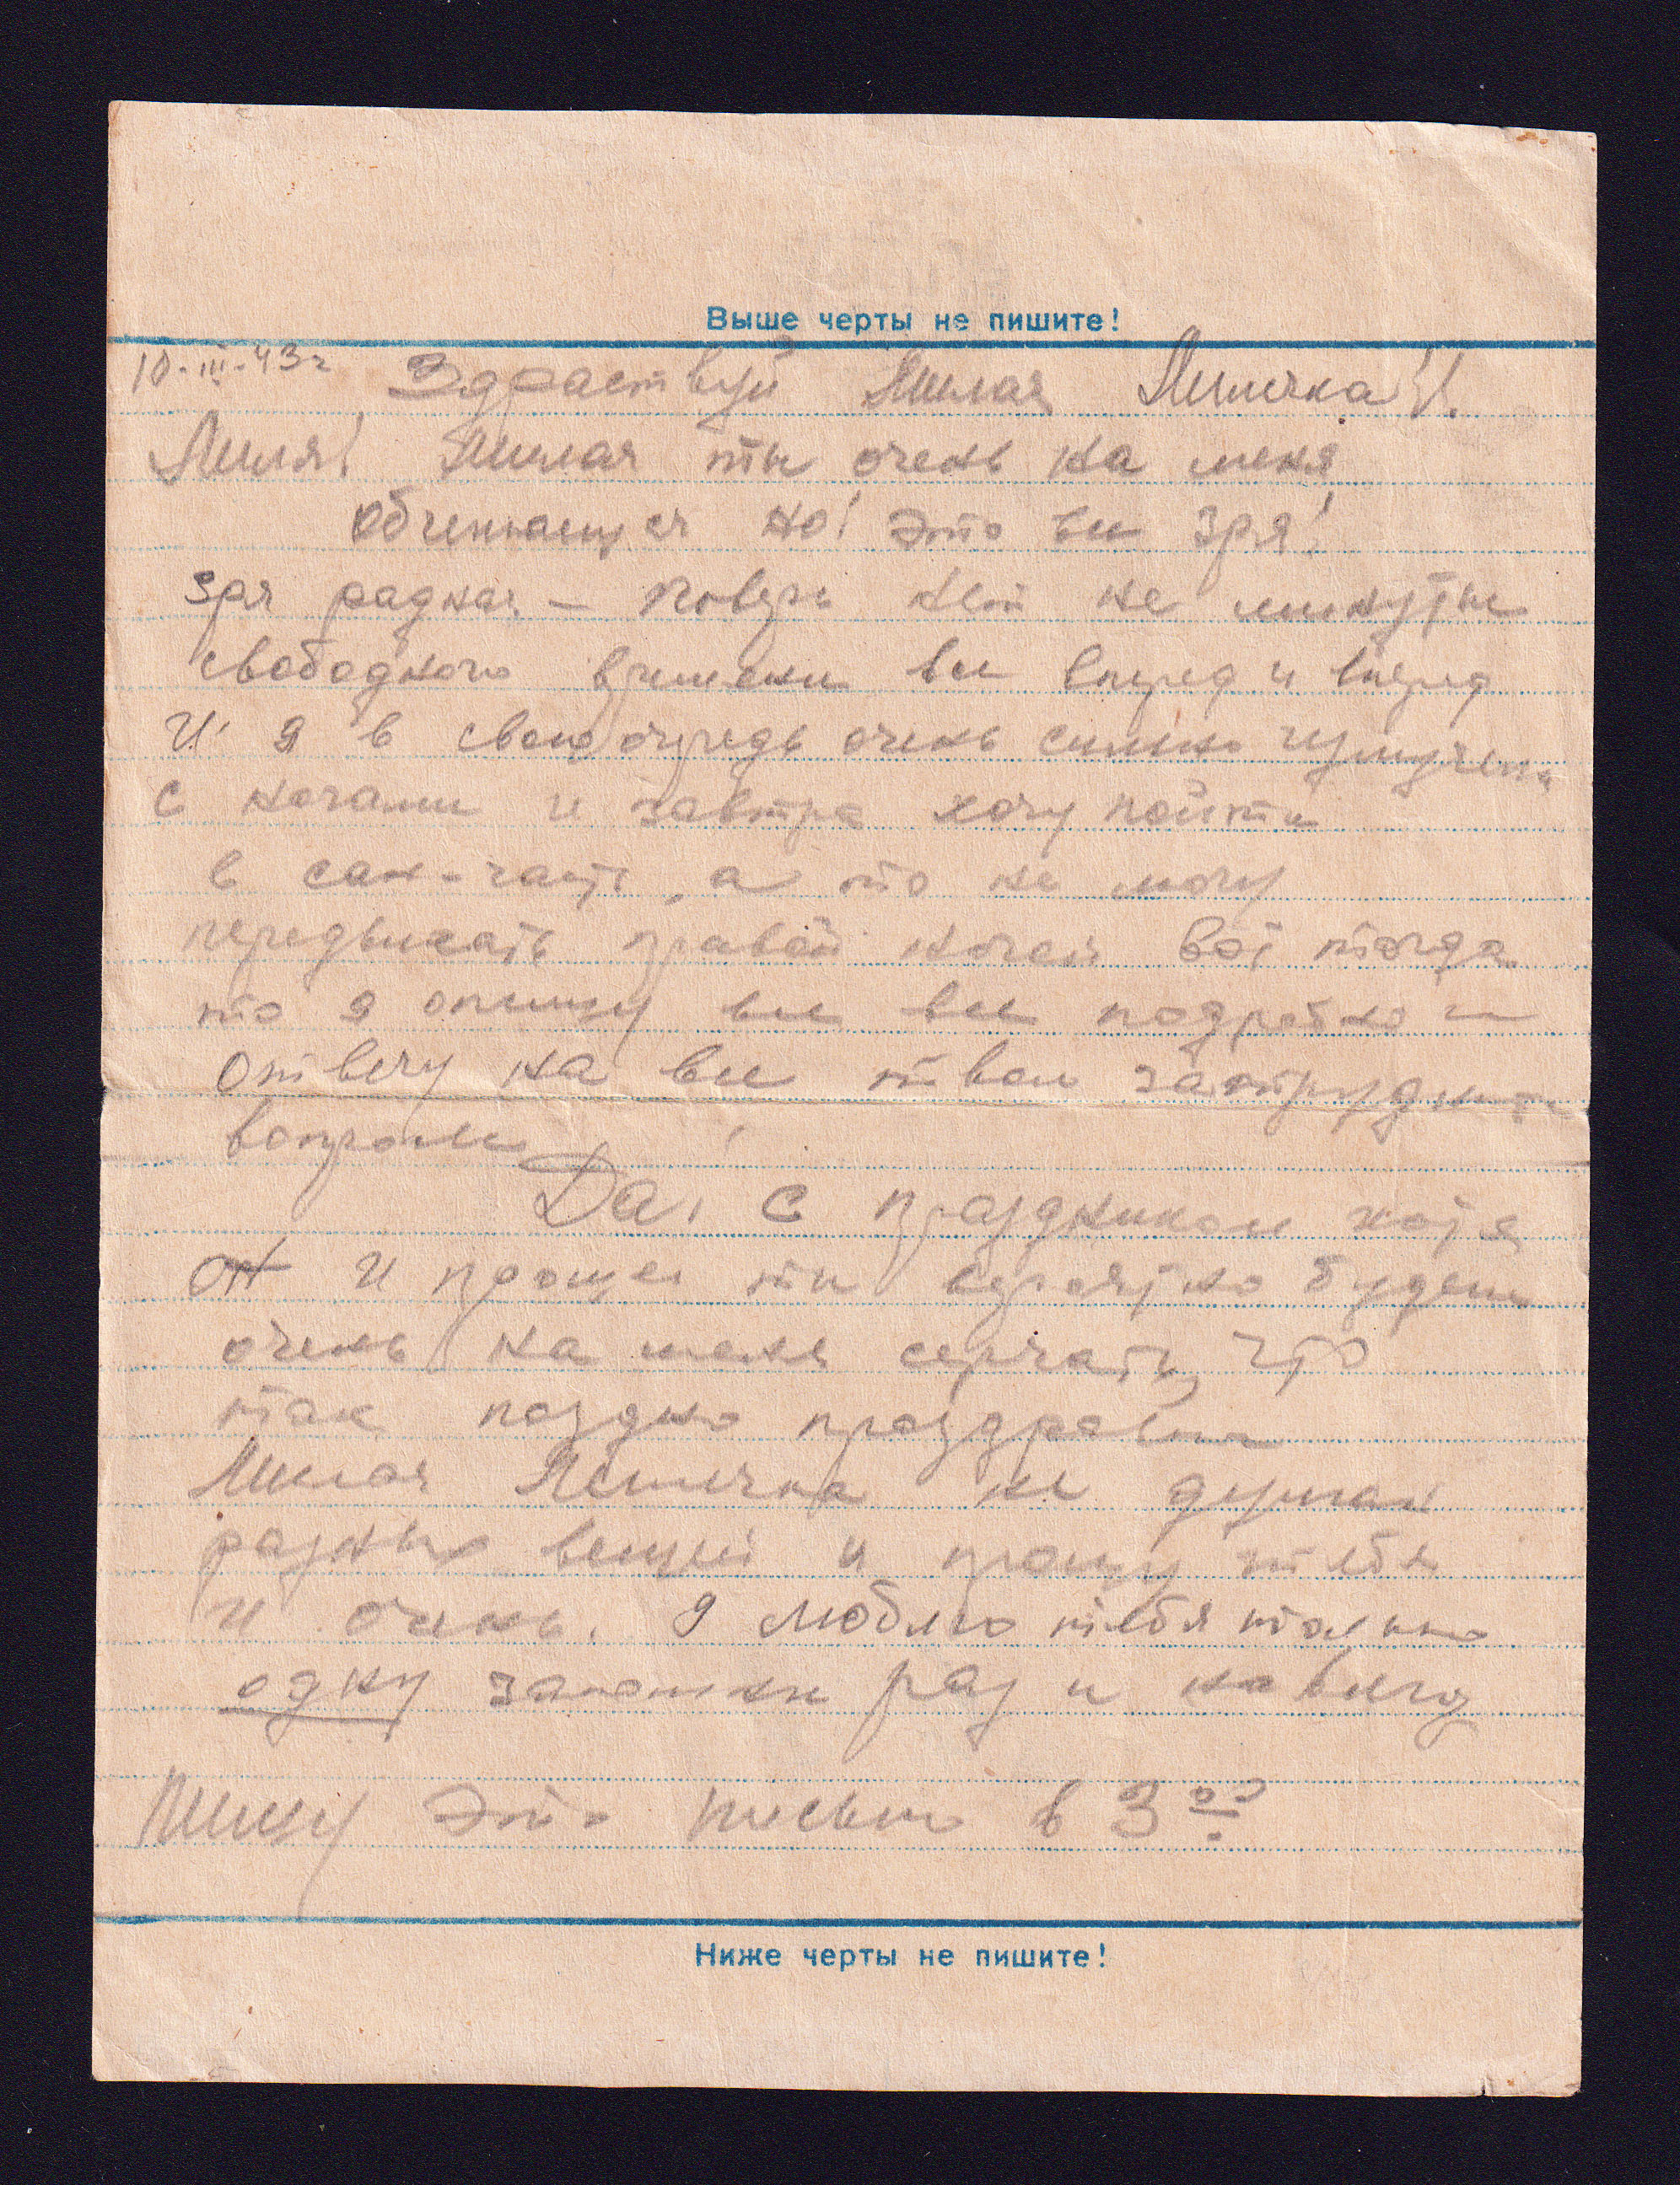 Выше черты не пишите!
10-III-43г Здраствуй Милая Лиличка!!
Лиля! Милая ты очень на меня
но! это вы зря!
зря радная – поверь нет не минуты
свободного времени все вперед и вперед
И я в свою очередь очень сильно
с ногами и завтра хочу пойти
в сан-часть, а то не могу
передвигать правой ногой Вот тогда
то я опишу все все подробно и
отвечу на все твои
вопросы
Да! с праздником хотя
он и прошел ты вероятно будешь
очень на меня серчать, что
так поздно
Милая не думай
разных вещей и прошу тебя
и очень. Я люблю тебя только
одну запомни раз и на всегд
Пишу это письмо в 3 00
Ниже черты не пишите!